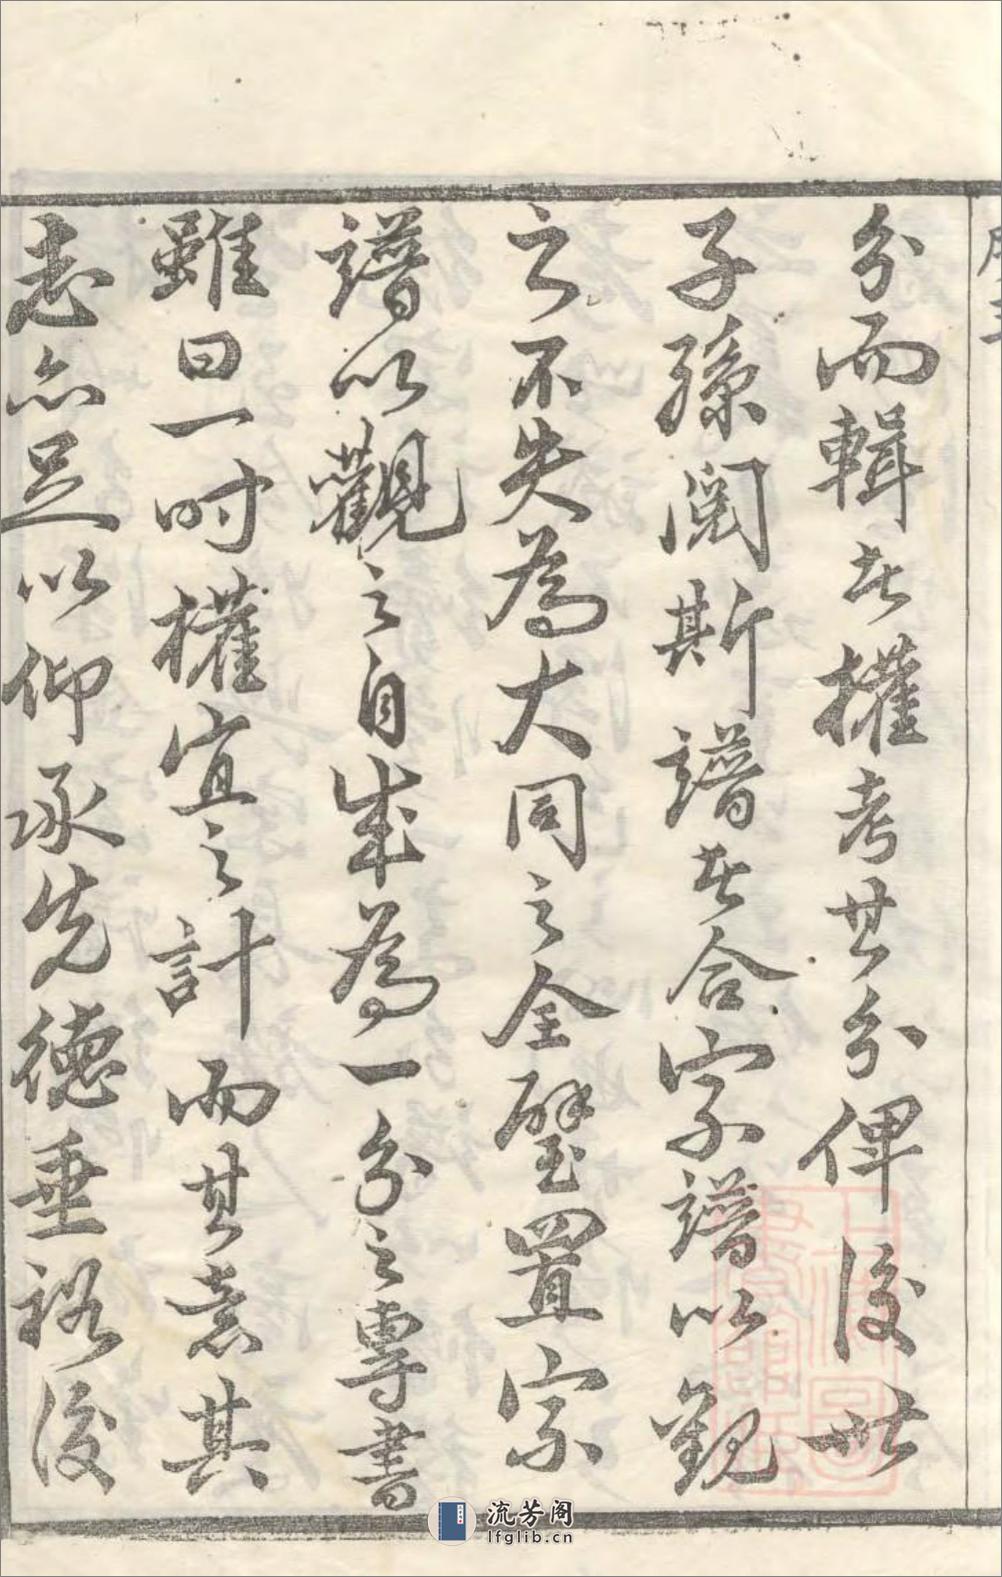 分而輯者權考其分俾後世
子孫閱斯譜者合宗譜以觀
之不失為大同之全璧置宗
譜以觀之自成為一分之專書
雖曰一时權宜之計而其意其
志亦足以仰承先德垂裕後
流芳阁
lfglib.cn